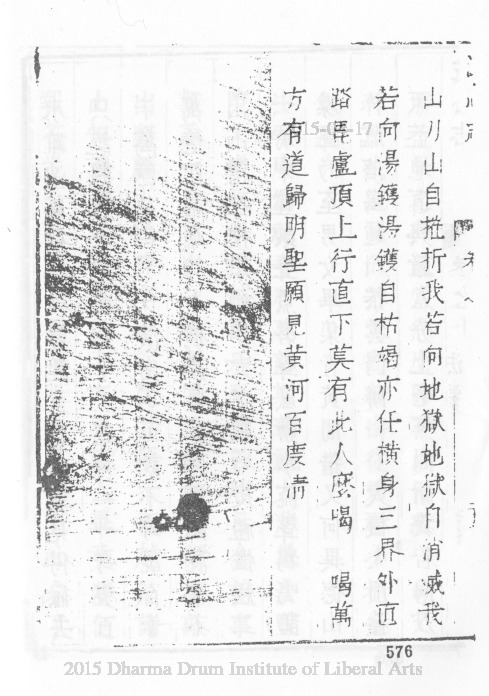 山刀山自摧折我若向地獄地獄自消滅我
若向湯鑊湯鑊自枯竭亦任橫身三界外直
踏毘盧頂上行直下莫有此人麼喝　喝萬
方有道歸明聖願見黃河百度清
15-07-17
576
2015 Dharma Drum Institute of Liberal Arts